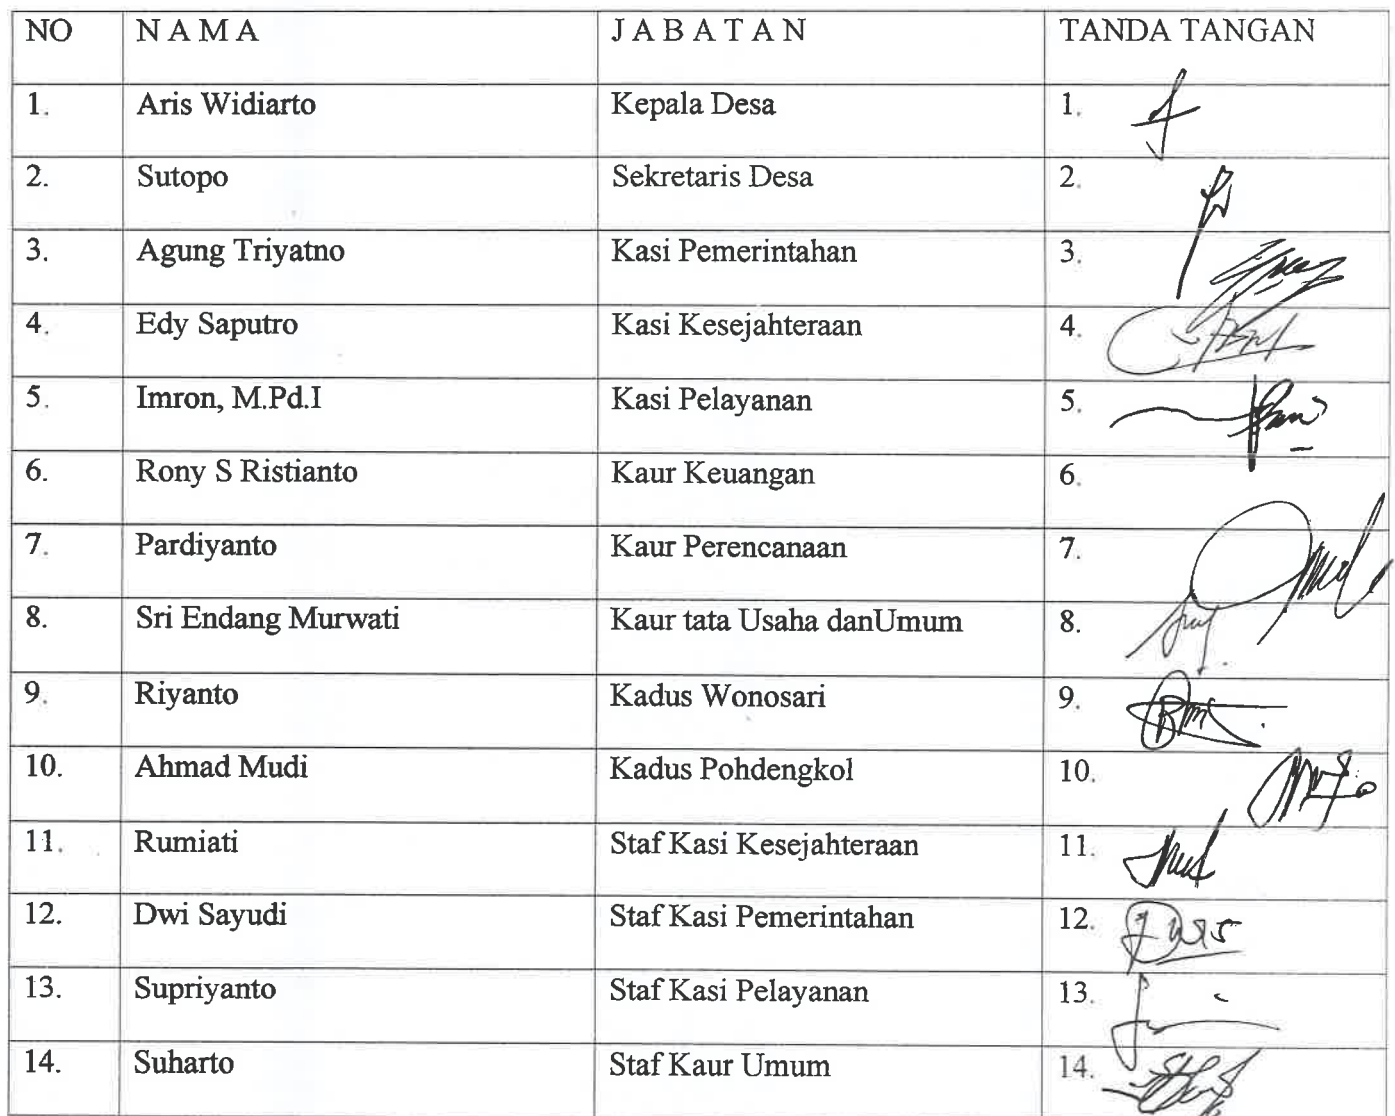 NO N A M A J A B A T A N TANDA TANGAN
1. Aris Widiarto Kepala Desa 1.
2. Sutopo Sekretaris Desa 2.
3. Agung Triyatno Kasi Pemerintahan 3.
4. Edy Saputro Kasi Kesejahteraan 4.
5. Imron, M.Pd.I Kasi Pelayanan 5.
6. Rony S Ristianto Kaur Keuangan 6.
7. Pardiyanto Kaur Perencanaan 7.
8. Sri Endang Murwati Kaur tata Usaha danUmum 8.
9. Riyanto Kadus Wonosari 9.
10. Ahmad Mudi Kadus Pohdengkol 10.
11. Rumiati Staf Kasi Kesejahteraan 11.
12. Dwi Sayudi Staf Kasi Pemerintahan 12.
13. Supriyanto Staf Kasi Pelayanan 13.
14. Suharto Staf Kaur Umum 14.